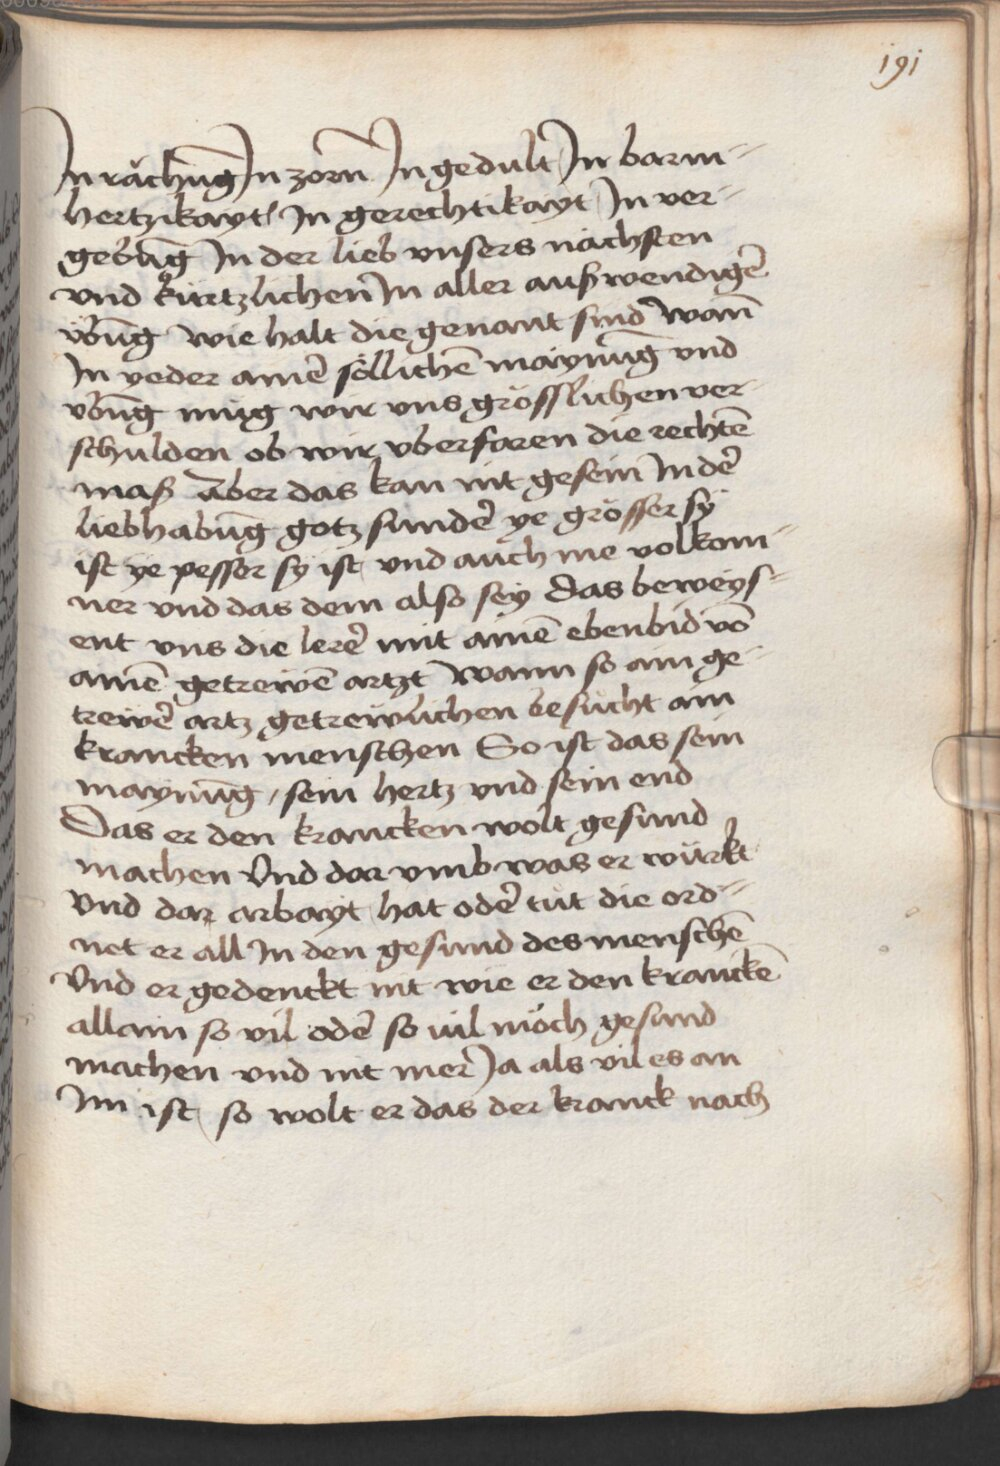 191
In rächūg In zorn̄ In gedult In barm-
hertzikayt In gerechtikayt In ver-
gebūg In der lieb vnsers nächsten
vnd kürtzlichen In aller aufswendigē
vbūg wie halt die genant sind wan̄
In yeder ainē söllichē maynūg vnd
vbūg mug wir vns grösslichen ver
schulden ob wir vberfaren die rechtē
mass aber das kan nit gesein In dē
liebhabūg gotz sundē ye grösser sy
ist ye pesser sy ist vnd auch me volkom-
ner vnd das dem also sey Das beweys-
ent vns die lerē mit ainē ebenbid vō
ainē getrewē artzt Wann so ain ge-
trewē artz getrewlichen besücht ain
krancken menschen So ist das sein
maynūg / sein hertz vnd sein end
Das er den krancken wolt gesund
machen Vnd dar vmb was er würkt
Vnd dar arbayt hat odē tüt die ord-
net er all In den gesund des menschē
Vnd er gedenckt nit wie er den kranckē
allain so vil odē so vil möch gesund
machen vnd nit mer Ja als vil es an
Im ist so wolt er das der kranck nach